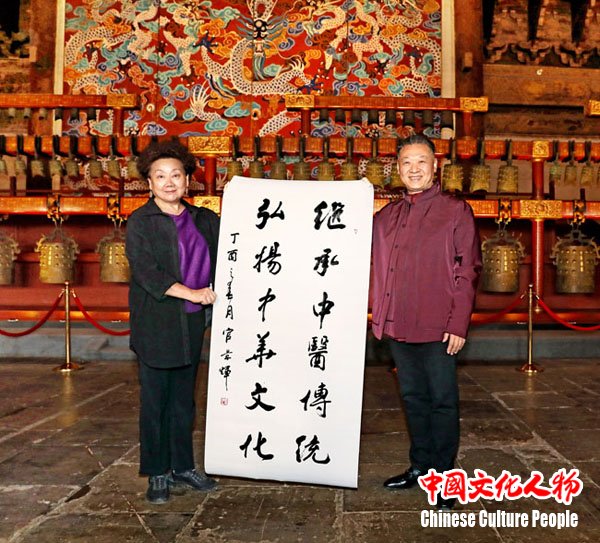 继承中醫傳統
弘揚中華文化
丁酉之春月官
中国文化人物
Chinese Culture People